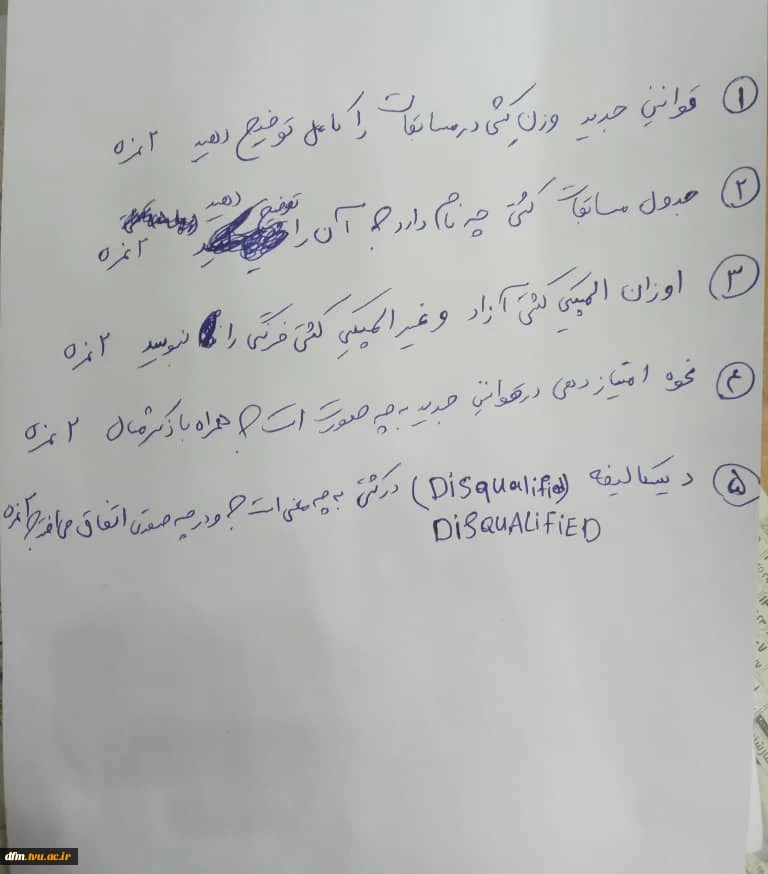 ۱ قوانین جدید وزن کشی در مسابقات را کامل توضیح دهید ۲ نمره
۲ جدول مسابقات کشتی چه نام دارد؟ آن را توضیح دهید ۲ نمره
۳ اوزان المپیکی کشتی آزاد و غیر المپیکی کشتی فرنگی را بنویسید ۲ نمره
۴ نحوه امتیازدهی در قوانین جدید به چه صورت است؟ همراه با ذکر مثال ۲ نمره
۵ دیسکالیفه (Disqualified) در کشتی به چه معنی است؟ و در چه صورتی اتفاق می افتد؟ ۲ نمره
DISQUALIFIED
dfm.tvu.ac.ir